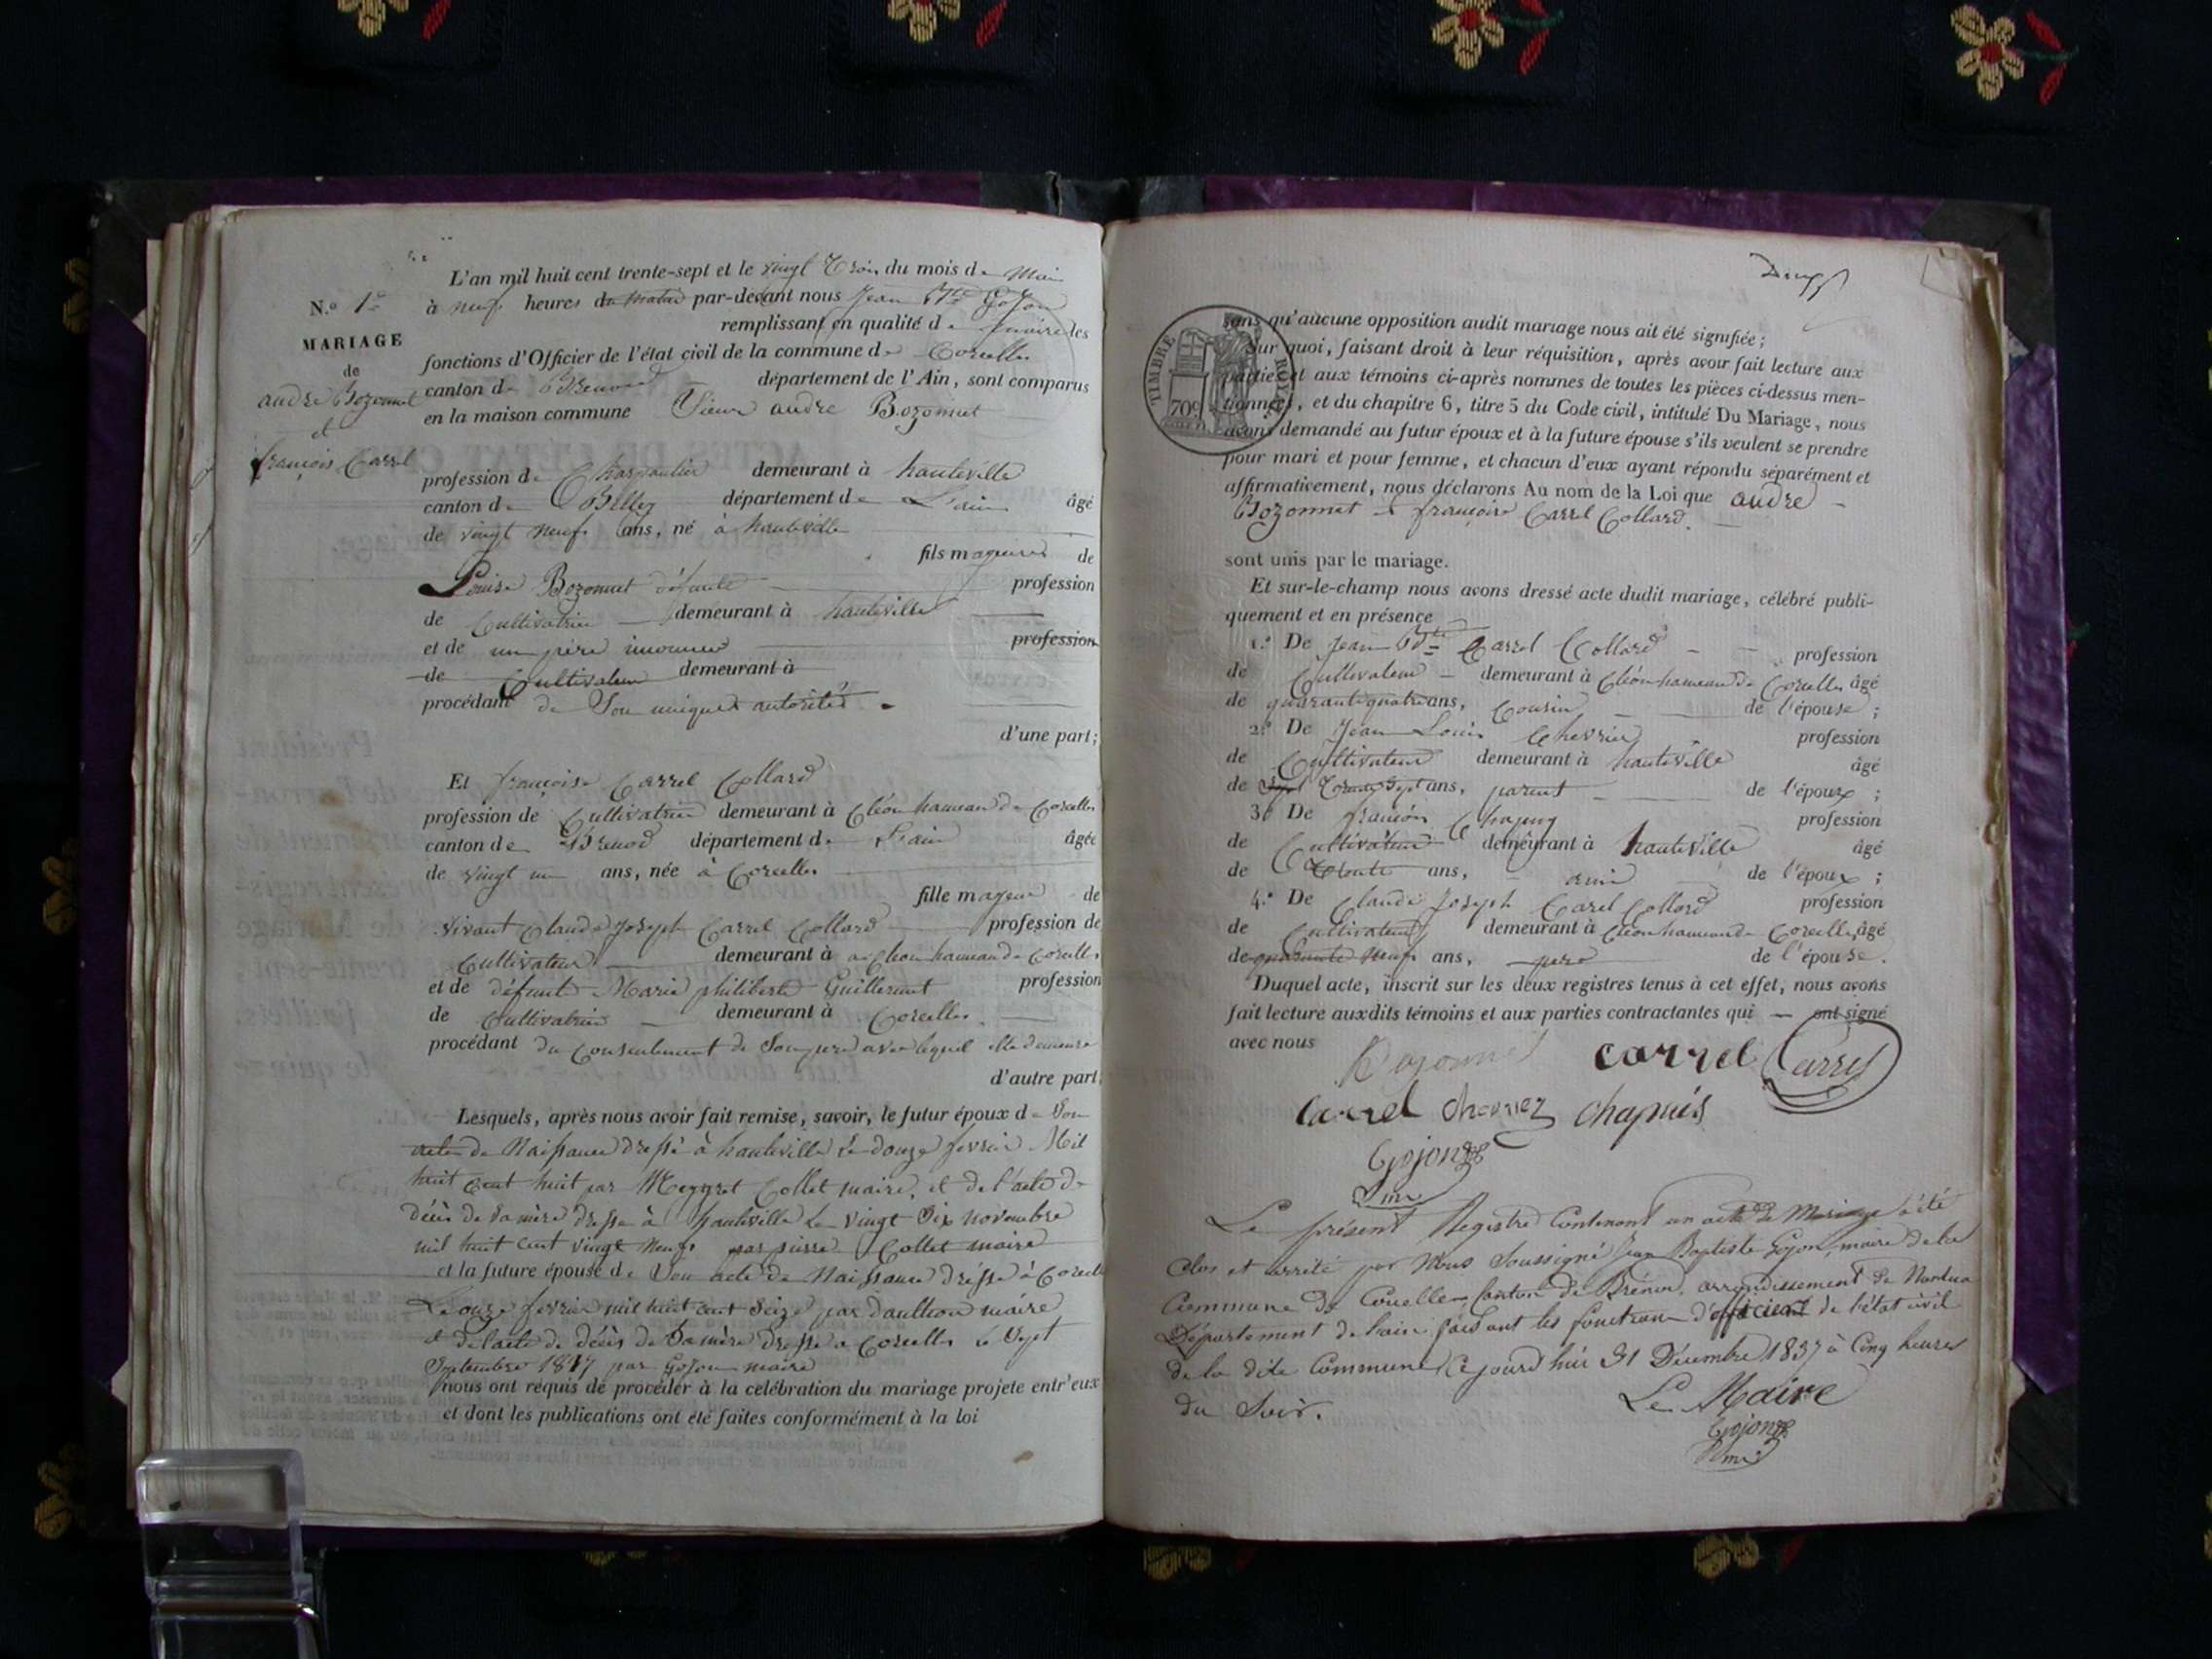 N.o 1er
MARIAGE
de
andré Bozonnet
et
françoise Carrel
L'an mil huit cent trente-sept et le vingt Trois du mois de Mai
à neuf heures du matin par-devant nous Jean Bte Gojon
remplissant en qualité de maire les
fonctions d'Officier de l'état civil de la commune de Corcelles
canton de Brenod département de l'Ain, sont comparus
en la maison commune Sieur andré Bozonnet
profession de Charpentier demeurant à hauteville
canton de département de L'ain âgé
de vingt neuf ans, né à hauteville
fils majeur de
Louise Bozonnet défunte profession
de Cultivatrice demeurant à hauteville
et de un père inconnu profession
de Cultivateur demeurant à
procédant de Son unique autorité
d'une part;
Et françoise Carrel Collard
profession de Cultivatrice demeurant à Cléon hameau de Corcelles
canton de Brenod département de L'ain âgée
de vingt un ans, née à Corcelles
fille majeur de
vivant Claude Joseph Carrel Collard profession de
Cultivateur demeurant à Cléon hameau de Corcelles
et de défunte Marie philiberte Guillermet profession
de Cultivatrice demeurant à Corcelles
procédant du Consentement de Son père avec lequel elle demeure
d'autre part
Lesquels, après nous avoir fait remise, savoir, le futur époux de Son
acte de Naissance dressé à hauteville le douze fevrier Mil
huit cent huit par Collet maire, et de l'acte de
décès de Sa mère dressé à hauteville Le vingt Six novembre
mil huit cent vingt neuf par pierre Collet maire
et la future épouse de Son acte de Naissance dressé à Corcelles
Le onze fevrier mil huit cent Seize par maire
et de l'acte de décès de Sa mère dressé a Corcelles le Sept
Septembre 1817 par Gojon maire
nous ont requis de procéder à la celébration du mariage projeté entr'eux
et dont les publications ont été faites conformément à la loi
TIMBRE ROYAL
70c
sans qu'aucune opposition audit mariage nous ait été signifiée;
Sur quoi, faisant droit à leur réquisition, après avoir fait lecture aux
parties et aux témoins ci-après nommés de toutes les pièces ci-dessus men-
tionnées, et du chapitre 6, titre 5 du Code civil, intitulé Du Mariage, nous
avons demandé au futur époux et à la future épouse s'ils veulent se prendre
pour mari et pour femme, et chacun d'eux ayant répondu séparément et
affirmativement, nous déclarons Au nom de la Loi que andré
Bozonnet et françoise Carrel Collard.
sont unis par le mariage.
Et sur-le-champ nous avons dressé acte dudit mariage, célébré publi-
quement et en présence
1.o De Jean Bte Carrel Collard profession
de Cultivateur demeurant à Cléon hameau de Corcelles âgé
de quarante quatre ans, Cousin de l'épouse;
2.o De Jean Louis Chevrier profession
de Cultivateur demeurant à hauteville âgé
de Trente Sept ans, parent de l'époux;
3.o De françois Chapuy profession
de Cultivateur demeurant à hauteville âgé
de Trente ans, ami de l'époux;
4.o De Claude Joseph Carel Collard profession
de Cultivateur demeurant à Cléon hameau de Corcelles, âgé
de quarante Neuf ans, père de l'épouse.
Duquel acte, inscrit sur les deux registres tenus à cet effet, nous avons
fait lecture auxdits témoins et aux parties contractantes qui ont signé
avec nous
Bozonnet carrel Carrel
Carrel chevriez chapuis
Gojon
me
Le présent Registre Contenant un acte de Mariage a été
Clos et arrêté par Nous Soussigné Jean Baptiste Gojon, maire de la
Commune de Corcelles, Canton de Brénod, arrondissement de Nantua
Département de l'ain faisant les fonctions d'officier de l'état civil
de la dite Commune, Ce jourd'hui 31 Décembre 1837 à Cinq heures
du Soir.
Le Maire
Gojon
me